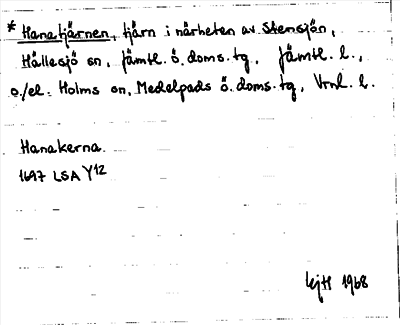 * Hanatjärnen, tjärn i närheten av Stensjön,
Hällesjö sn, Jämtl. ö. doms. tg, Jämtl. l.,
o./el. Holms sn, Medelpads ö. doms. tg, Vrnl. l.
Hanakerna.
1697 LSA Y12
1968